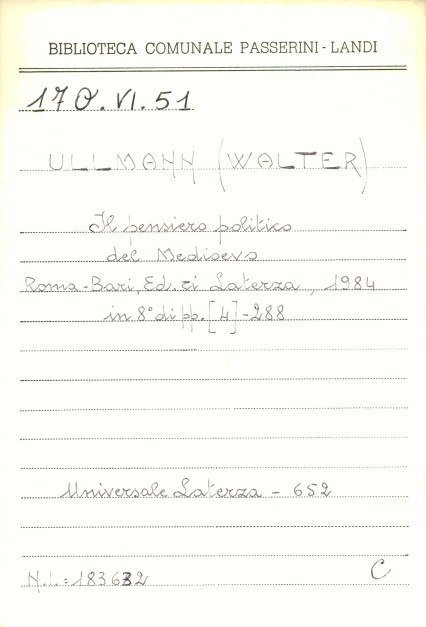 BIBLIOTECA COMUNALE PASSERINI - LANDI
170.VI.51
ULLMANN (WALTER)
Il pensiero politico
del Medioevo
Roma-Bari, Ed. ri Laterza, 1984
in 8° di pp. [4]-288
Universale Laterza - 652
N.I.=183632
C